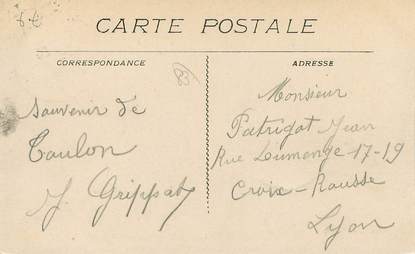 CARTE POSTALE
CORRESPONDANCE
ADRESSE
83
Souvenir de
Toulon
J. Grippat
Monsieur
Patrigot Jean
Rue Dumenge 17-19
Croix-Rousse
Lyon